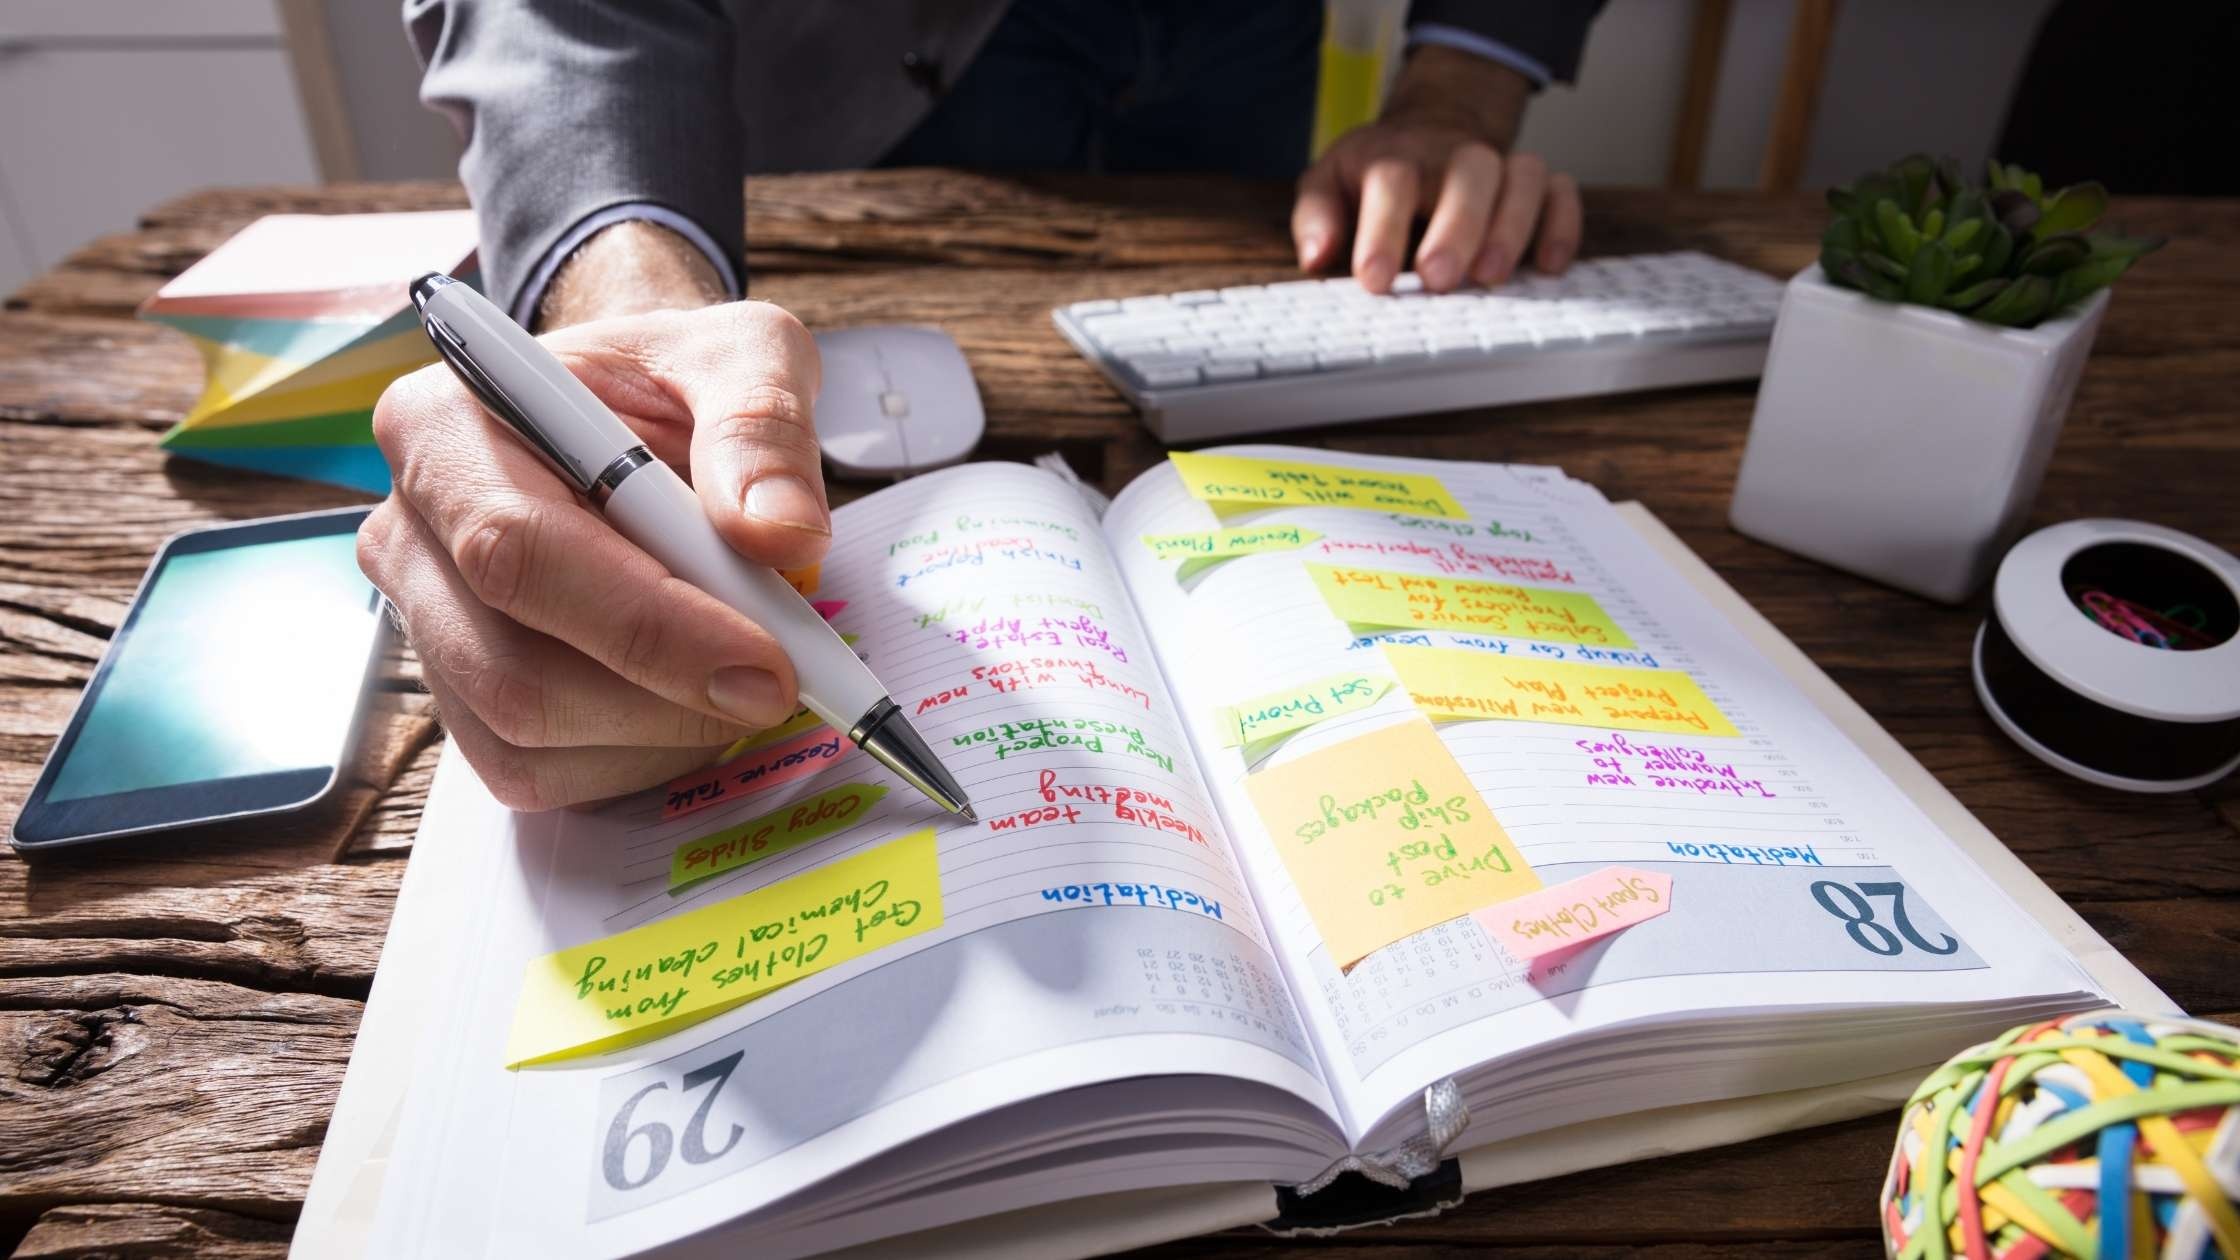 28
Juli
Sport Clothes
Meditation
Drive to
Post
Ship
Packages
Introduce new
Manager to
Colleagues
Prepare new Milestone
Project Plan
Set Priorit
Pickup Car from Dealer
Select Service
Providers for
Review and Test
Meeting with
Department
Review Plans
Yoga Classes
Dinner with Clients
Reserve Table
29
August
Meditation
Get Clothes from
Chemical cleaning
Weekly team
meeting
Copy Slides
Reserve Table
New Project
Presentation
Lunch with new
Investors
Real Estate
Agent Appt.
Dentist Appt.
Finish Report
Deadline
Swimming Pool